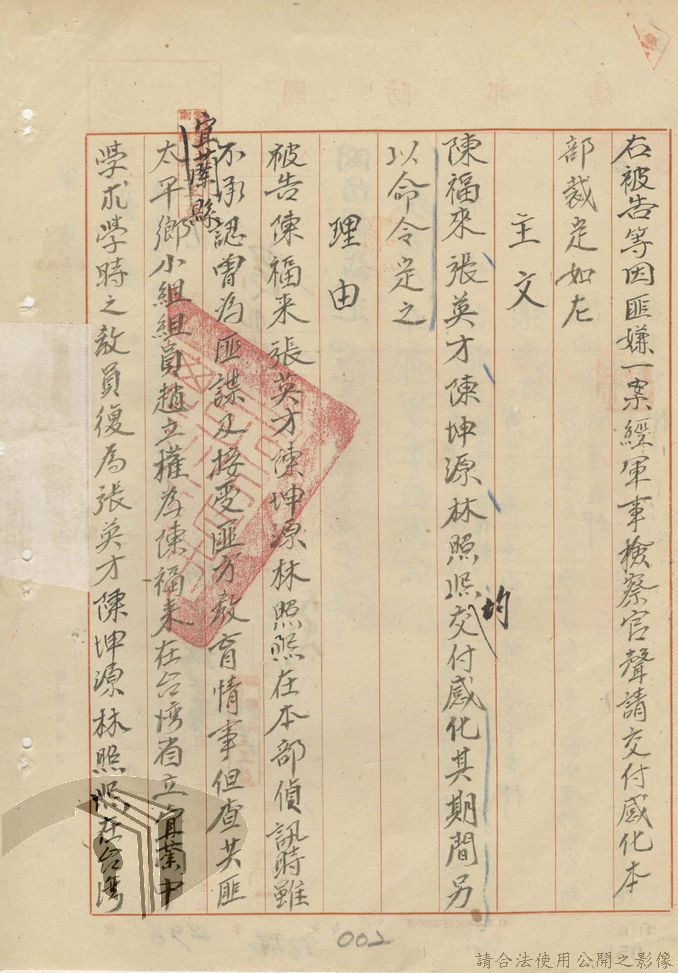 右被告等因匪嫌一案經軍事檢察官聲請交付感化本
部裁定如左
主文
陳福來張英才陳坤源林照熙均交付感化其期間另
以命令定之
理由
被告陳福來張英才陳坤源林照熙在本部偵訊時雖
不承認曾為匪諜及接受匪方教育情事但查共匪
宜蘭縣
太平鄉小組組員趙立權為陳福來在台灣省立宜蘭中
學求學時之教員復為張英才陳坤源林照熙在台灣
002
請合法使用公開之影像